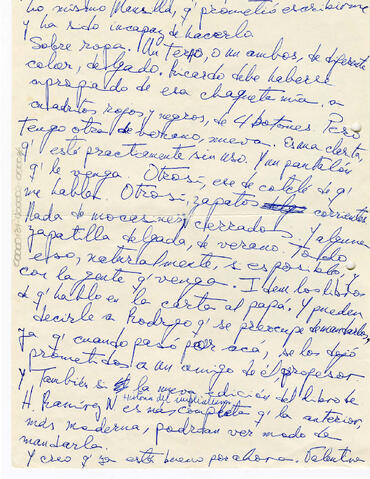 no mismo Mansilla, q' prometió escribirme
y ha sido incapaz de hacerlo
Sobre ropa. Un terno, o un ambos, de diferente
color, delgado. Ricardo debe haberse
apropiado de esa chaqueta mía, a
cuadritos rojos y negros, de 4 botones. Pero
tengo otra de verano, nueva. Es una clarita,
q' está practicamente sin uso. Y un pantalón
q' le venga. Otrosí, ese de cotelé de q'
me hablan. Otrosí, zapatos corrientes
Nada de mocasines, cerrados. Y alguna
zapatilla delgada, de verano. Todo
eso, naturalmente, si es posible, y
con la gente q' venga. Idem los libros
de q' hablo en la carta al papá. Y pueden
decirle a Rodrigo q' se preocupe de mandarlos,
ya q' cuando pasó por acá, se los dejó
prometidos a un amigo de él, profesor
Y también si la nueva edición del libro de
H. Ramírez N historia del imperialismo es más completa q' la anterior,
más moderna, podrían ver modo de
mandarla.
Y creo q' ya está bueno por ahora. Valentina